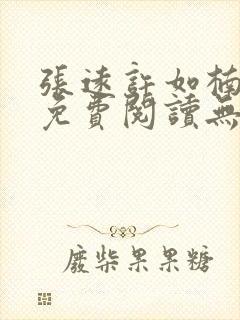 張遠許如楠
免費閱讀無
廢柴果果糖